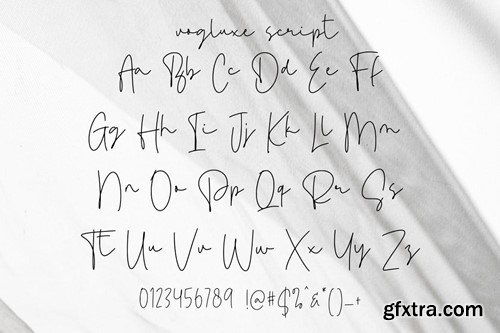 vogluxe script
Aa Bb Cc Dd Ee Ff
Gg Hh Ii Jj Kk Ll Mm
Nn Oo Pp Qq Rr Ss
Tt Uu Vv Ww Xx Yy Zz
0123456789 !@#$%^&*()_+
gfxtra.com